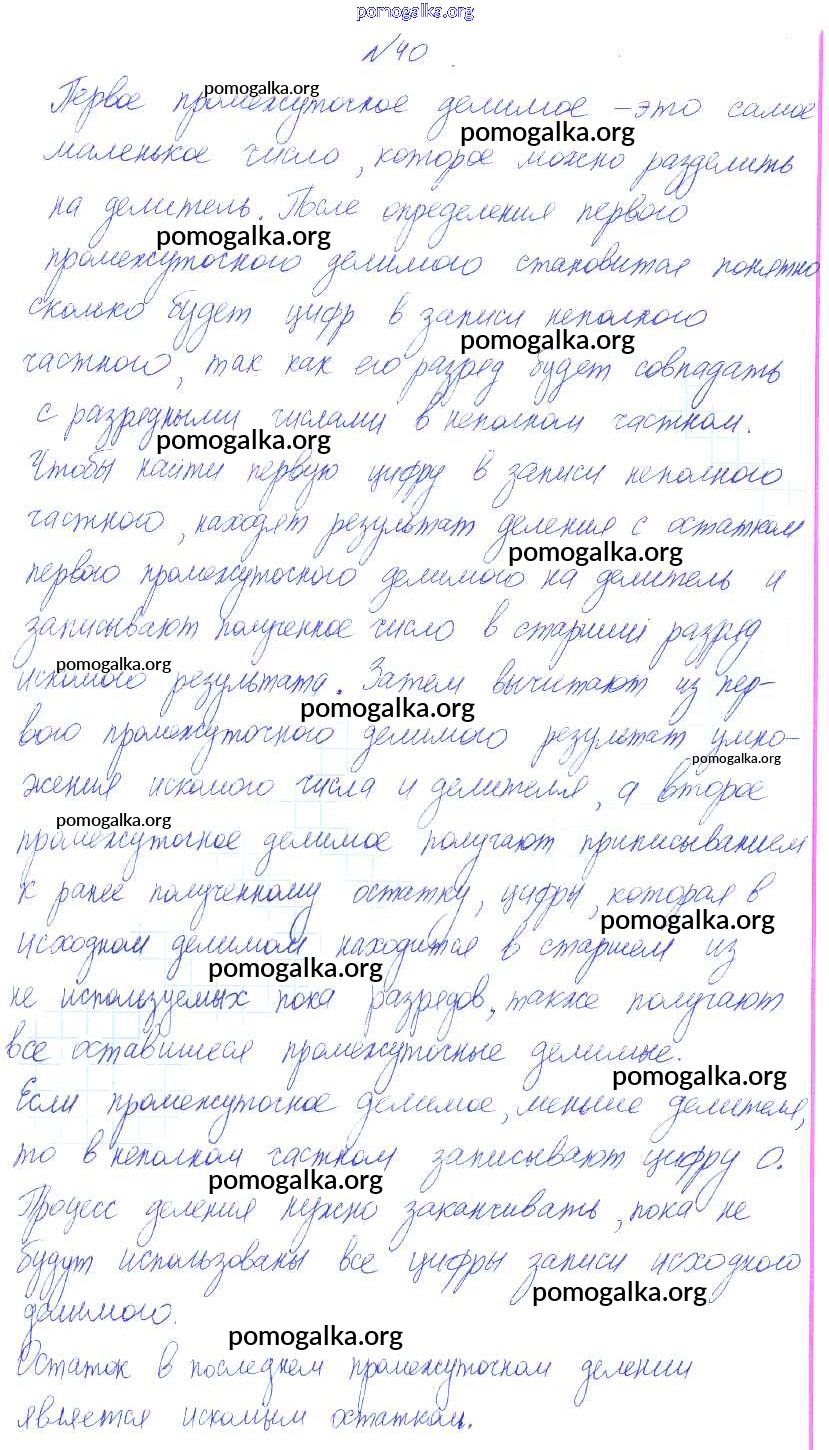 pomogalka.org
№40
pomogalka.org
Первое промежуточное делимое – это самое
pomogalka.org
маленькое число, которое можно разделить
на делитель. После определения первого
pomogalka.org
промежуточного делимого становится понятно
сколько будет цифр в записи неполного
pomogalka.org
частного, так как его разряд будет совпадать
с разрядными числами в неполном частном.
pomogalka.org
Чтобы найти первую цифру в записи неполного
частного, находят результат деления с остатком
pomogalka.org
первого промежуточного делимого на делитель и
записывают полученное число в старший разряд
pomogalka.org
искомого результата. Затем вычитают из пер-
pomogalka.org
вого промежуточного делимого результат умно-
pomogalka.org
жения искомого числа и делителя, а второе
pomogalka.org
промежуточное делимое получают приписыванием
к ранее полученному остатку, цифры, которая в
pomogalka.org
исходном делимом находится в старшем из
pomogalka.org
не используемых пока разрядов, также получают
все оставшиеся промежуточные делимые.
pomogalka.org
Если промежуточное делимое, меньше делителя,
то в неполном частном записывают цифру 0.
pomogalka.org
Процесс деления нужно заканчивать, пока не
будут использованы все цифры записи исходного
pomogalka.org
делимого.
pomogalka.org
Остаток в последнем промежуточном делении
является искомым остатком.